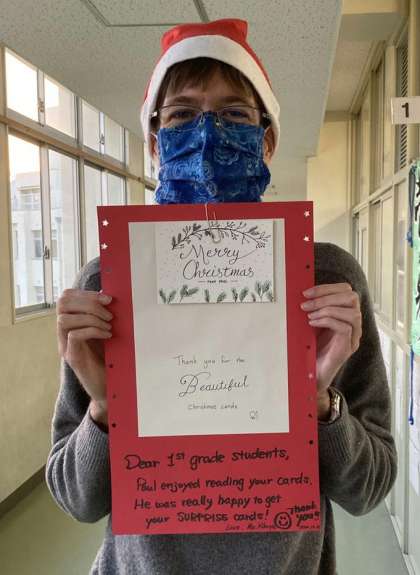 1
Merry
Christmas
Thank you for the
Beautiful
Christmas cards
Dear 1st grade students,
Paul enjoyed reading your cards.
He was really happy to get
your SURPRISE cards!
Thank
you!!
Love, Ms.